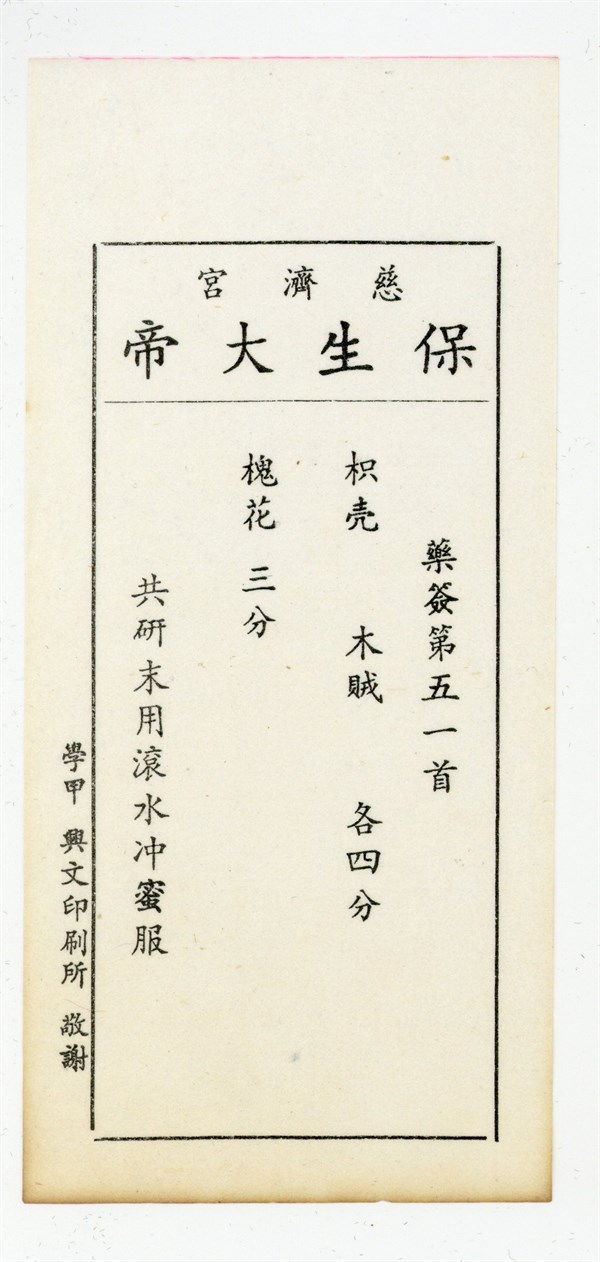 慈濟宮
保生大帝
藥簽第五一首
枳壳 木賊 各四分
槐花 三分
共研末用滾水冲蜜服
學甲 興文印刷所 敬謝